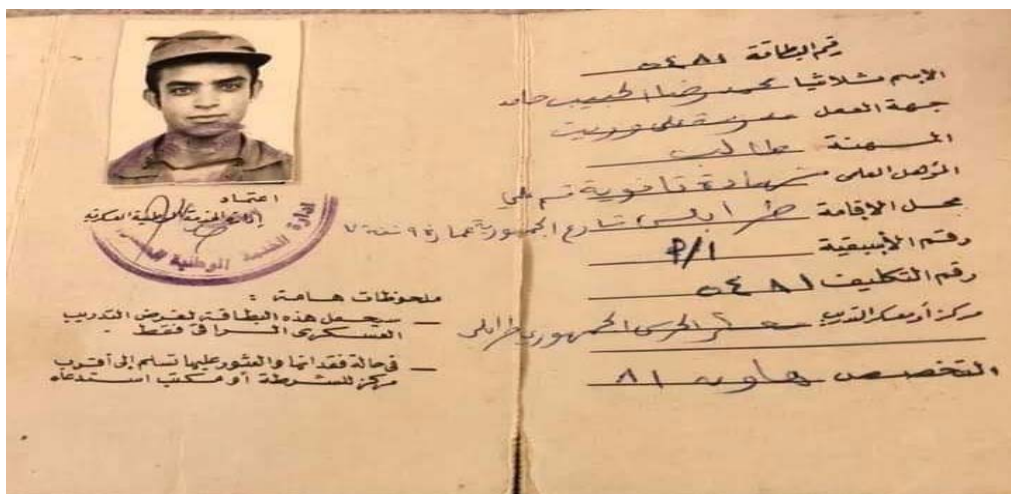 رقم البطاقة ٥٤٨١
الاسم ثلاثيا محمد رضا الحبيب حامد
جهة العمل مدرسة علي وريث
المهنة طالب
المؤهل العلمي شهادة ثانوية قسم علمي
محل الإقامة طرابلس شارع الجمهورية عمارة ٩ شقة ٧
رقم الأسبقية ٢/١
رقم التكليف ٥٤٨١
مركز أو معسكر التدريب معسكر الحرس الجمهوري طرابلس
التخصص هاون ٨١
اعتماد
إدارة الخدمة الوطنية العسكرية
إدارة الخدمة الوطنية
ملحوظات هامة :
— سيحمل هذه البطاقة لغرض التدريب
العسكري الراقي فقط .
— في حالة فقدانها والعثور عليها تسلم إلى أقرب
مركز للشرطة أو مكتب استدعاء